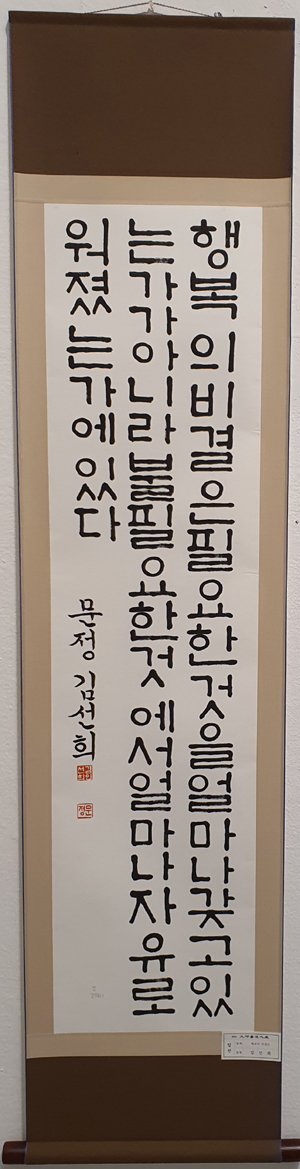 행복의비결은필요한것을얼마나갖고있
는가가아니라불필요한것에서얼마나자유로
워졌는가에있다
문정 김선희